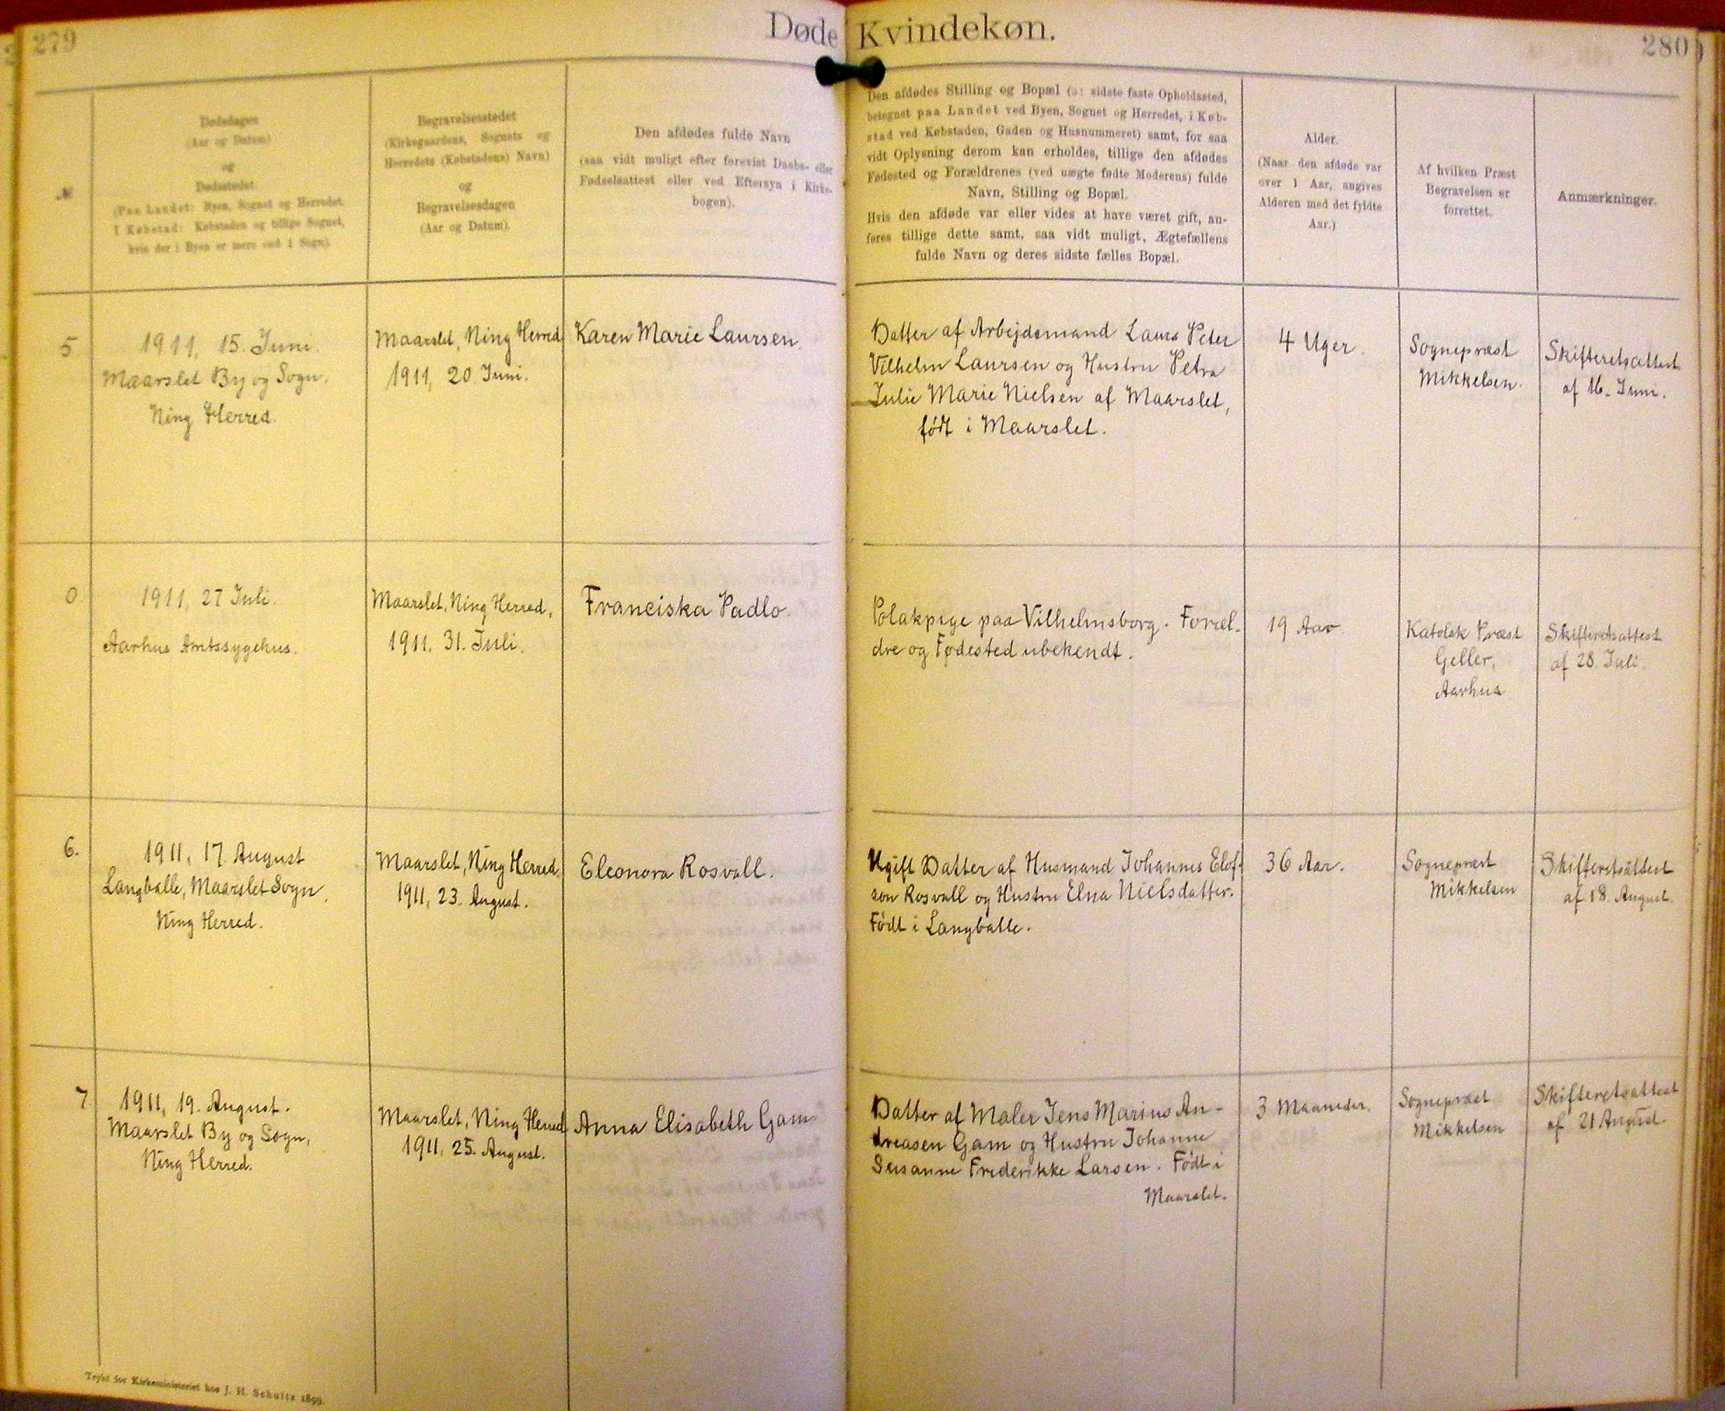 279
Døde Kvindekøn.
280
№
Dødsdagen
(Aar og Datum)
og
Dødsstedet
(Paa Landet: Byen, Sognet og Herredet.
I Købstad: Købstaden og tillige Sognet,
hvis der i Byen er mere end 1 Sogn).
Begravelsesstedet
(Kirkegaardens, Sognets og
Herredets (Købstadens) Navn)
og
Begravelsesdagen
(Aar og Datum).
Den afdødes fulde Navn
(saa vidt muligt efter forevist Daabs- eller
Fødselsattest eller ved Eftersyn i Kirke-
bogen).
Den afdødes Stilling og Bopæl (ɔ: sidste faste Opholdssted,
betegnet paa Landet ved Byen, Sognet og Herredet, i Køb-
stad ved Købstaden, Gaden og Husnummeret) samt, for saa
vidt Oplysning derom kan erholdes, tillige den afdødes
Fødested og Forældrenes (ved uægte fødte Moderens) fulde
Navn, Stilling og Bopæl.
Hvis den afdøde var eller vides at have været gift, an-
føres tillige dette samt, saa vidt muligt, Ægtefællens
fulde Navn og deres sidste fælles Bopæl.
Alder.
(Naar den afdøde var
over 1 Aar, angives
Alderen med det fyldte
Aar.)
Af hvilken Præst
Begravelsen er
forrettet.
Anmærkninger.
5
1911, 15. Juni.
Maarslet By og Sogn,
Ning Herred.
Maarslet, Ning Herred
1911, 20. Juni.
Karen Marie Laursen.
Datter af Arbejdsmand Laurs Peter
Vilhelm Laursen og Hustru Petra
Julie Marie Nielsen af Maarslet,
født i Maarslet.
4 Uger.
Sognepræst
Mikkelsen.
Skifteretsattest
af 16. Juni.
0
1911, 27 Juli.
Aarhus Amtssygehus.
Maarslet, Ning Herred,
1911. 31. Juli.
Franciska Padlo.
Polakpige paa Vilhelmsborg. Foræl-
dre og Fødested ubekendt.
19 Aar
Katolsk Præst
Geller,
Aarhus
Skifteretsattest
af 28. Juli.
6.
1911, 17. August
Langballe, Maarslet Sogn,
Ning Herred.
Maarslet, Ning Herred
1911, 23. August.
Eleonora Rosvall.
Ugift Datter af Husmand Johannes Elof-
son Rosvall og Hustru Elna Nielsdatter.
Født i Langballe.
36 Aar.
Sognepræst
Mikkelsen
Skifteretsattest
af 18. August.
7
1911, 19. August.
Maarslet By og Sogn,
Ning Herred.
Maarslet, Ning Herred
1911, 25. August.
Anna Elisabeth Gam
Datter af Maler Jens Marius An-
dreasen Gam og Hustru Johanne
Susanne Frederikke Larsen. Født i
Maarslet.
3 Maaneder.
Sognepræst
Mikkelsen
Skifteretsattest
af 21 August.
Trykt for Kirkeministeriet hos J. H. Schultz 1899.